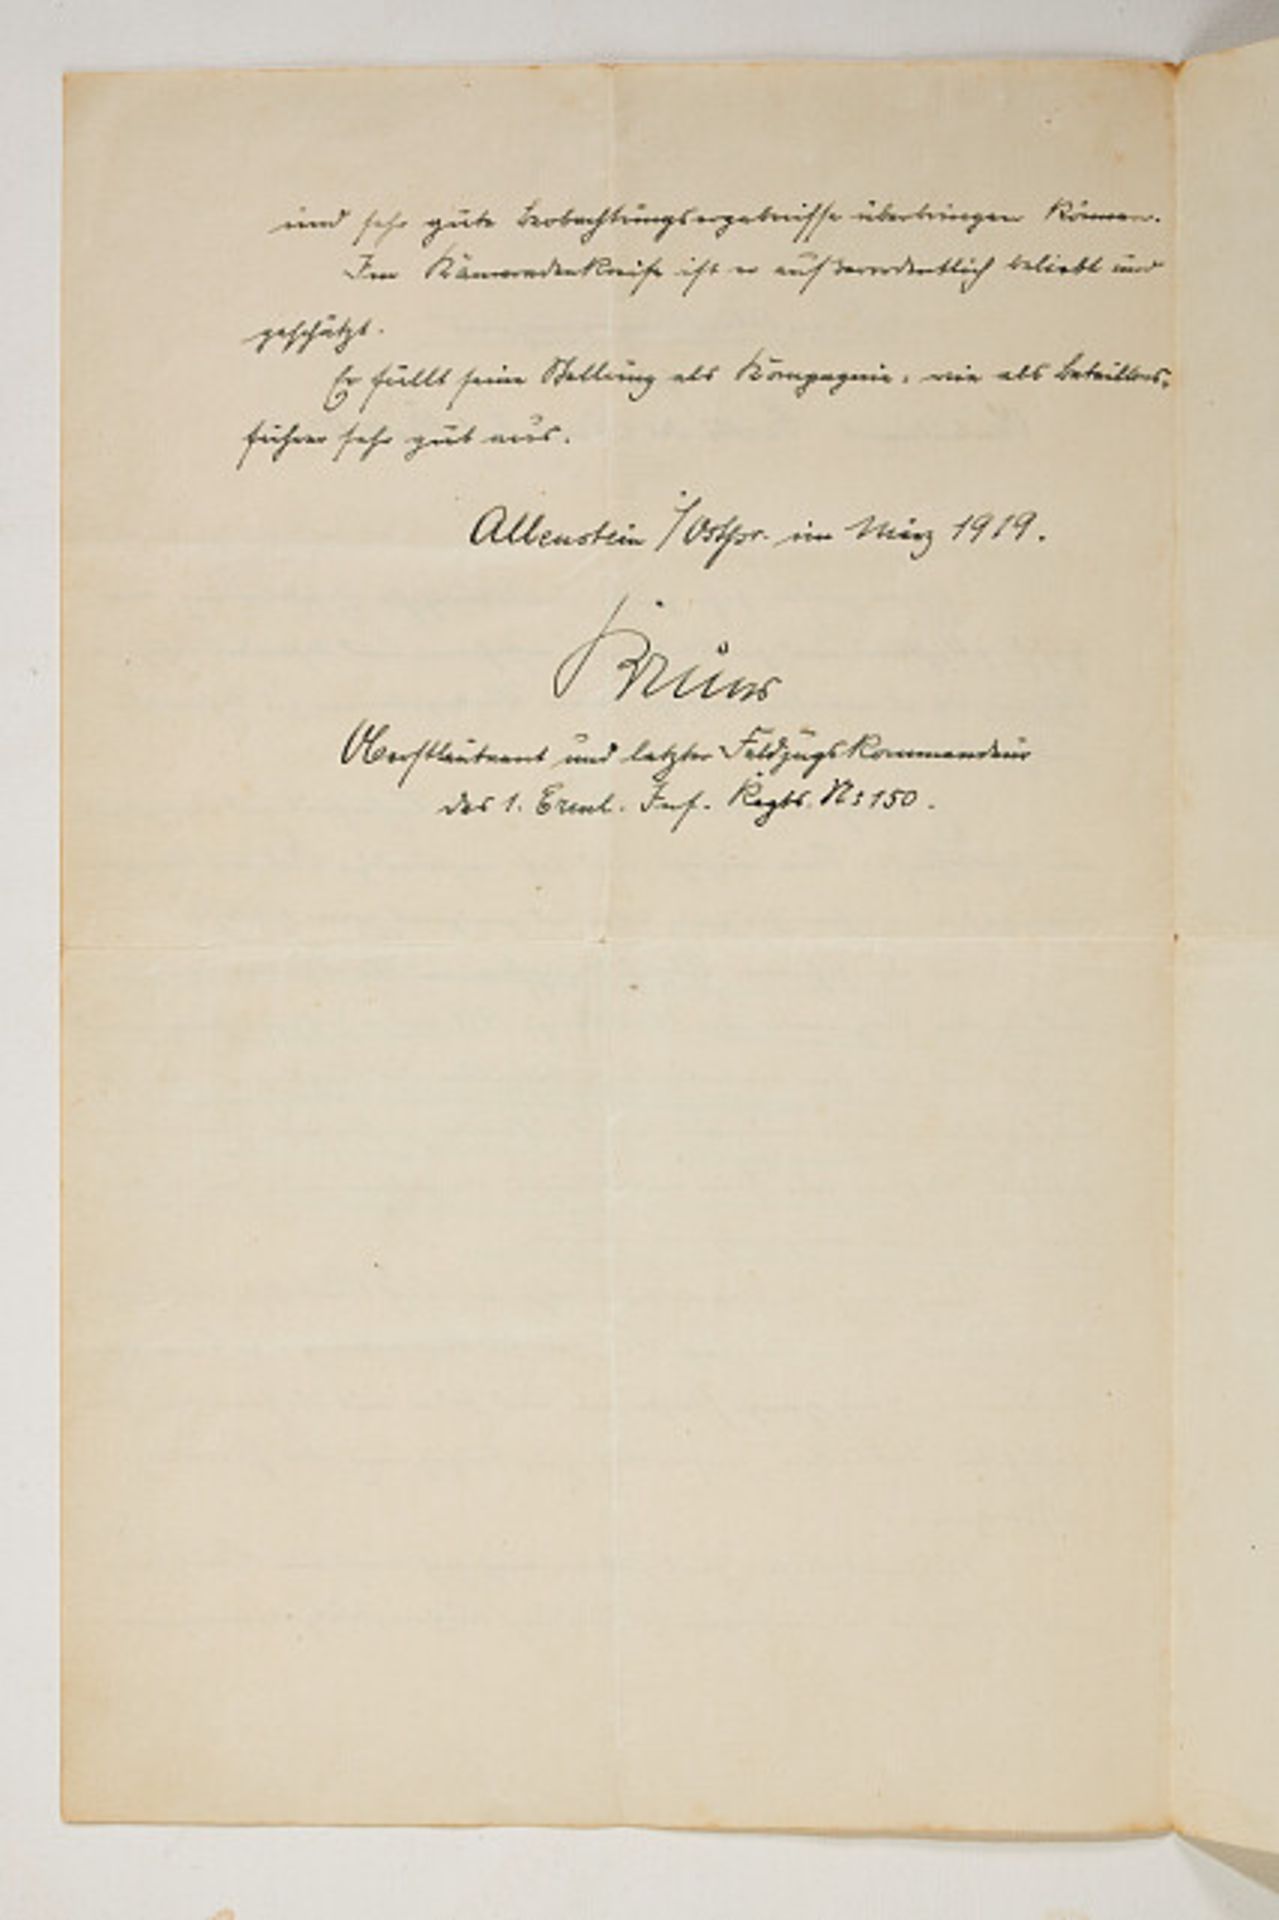 und sehr gute Beobachtungsergebnisse überbringen können.
Im Kameradenkreise ist er außerordentlich beliebt und
geschätzt.
Er füllt seine Stellung als Kompagnie- wie als Bataillons-
führer sehr gut aus.
Allenstein i/Ostpr. im März 1919.
Bruns
Oberstleutnant und letzter Feldzugskommandeur
des 1. Erml. Inf. Regts. No 150.